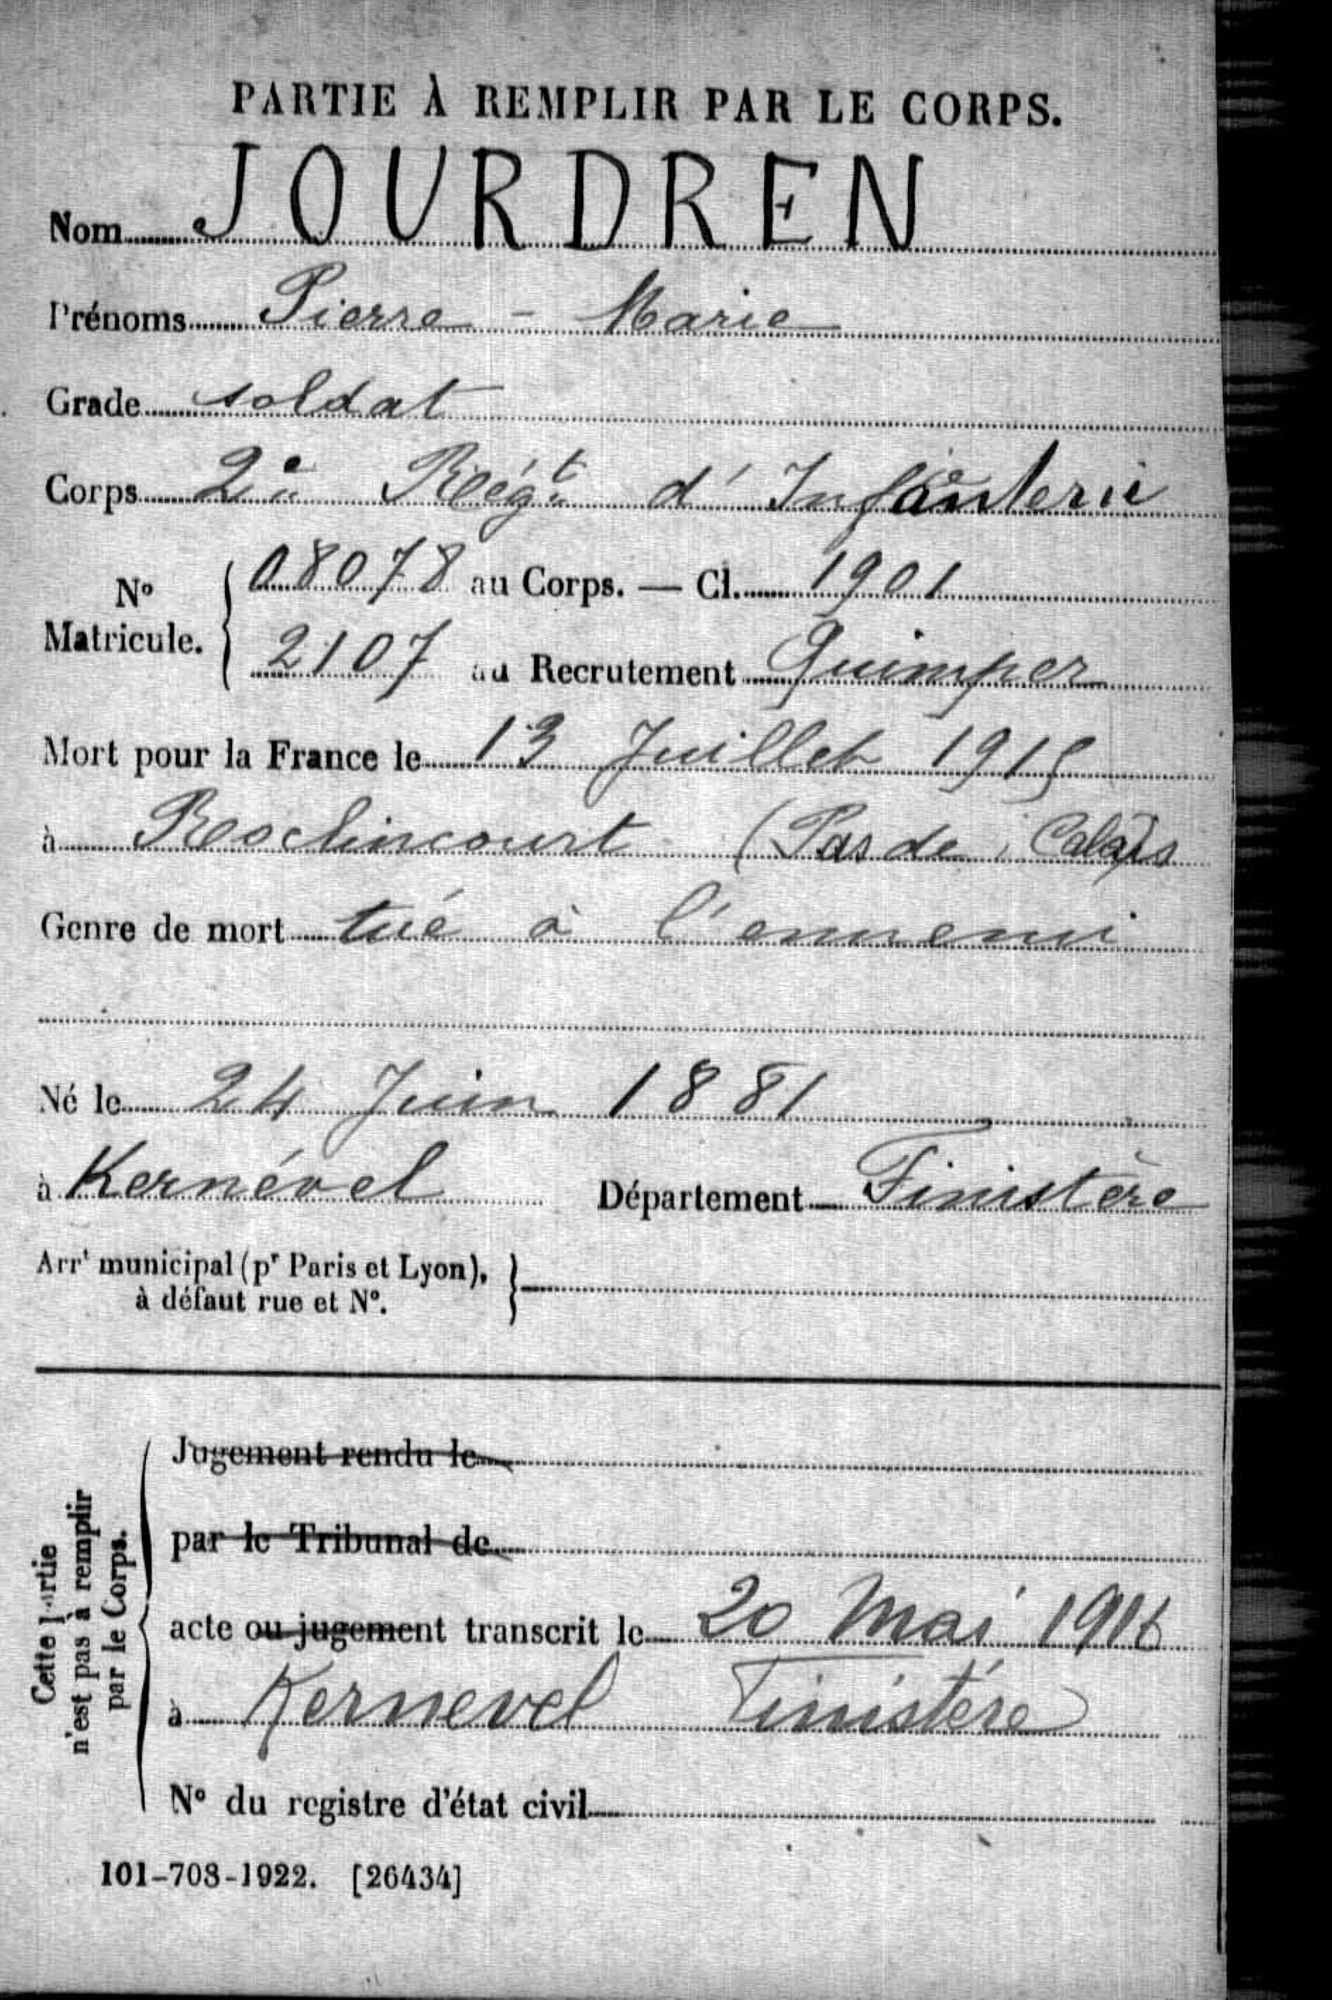 PARTIE À REMPLIR PAR LE CORPS.
Nom JOURDREN
Prénoms Pierre - Marie
Grade soldat
Corps 2e Régt d'Infanterie
No Matricule. { 08078 au Corps. — Cl. 1901
2107 au Recrutement Quimper
Mort pour la France le 13 Juillet 1915
à Roclincourt (Pas de Calais)
Genre de mort tué à l'ennemi
Né le 24 Juin 1881
à Kernével Département Finistère
Arrt municipal (pr Paris et Lyon),
à défaut rue et No.
Cette partie
n'est pas à remplir
par le Corps.
Jugement rendu le
par le Tribunal de
acte ou jugement transcrit le 20 Mai 1916
à Kernevel Finistére
No du registre d'état civil
101-708-1922. [26434]